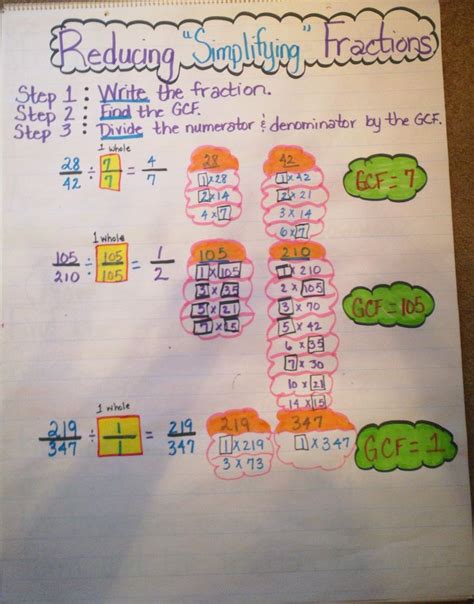 Reducing "Simplifying" Fractions
Step 1: Write the fraction.
Step 2: Find the GCF.
Step 3: Divide the numerator & denominator by the GCF.
1 whole
28/42 ÷ 7/7 = 4/7
28
1 x 28
2 x 14
4 x 7
42
1 x 42
2 x 21
3 x 14
6 x 7
GCF = 7
1 whole
105/210 ÷ 105/105 = 1/2
105
1 x 105
3 x 35
5 x 21
7 x 15
210
1 x 210
2 x 105
3 x 70
5 x 42
6 x 35
7 x 30
10 x 21
14 x 15
GCF = 105
1 whole
219/347 ÷ 1/1 = 219/347
219
1 x 219
3 x 73
347
1 x 347
GCF = 1